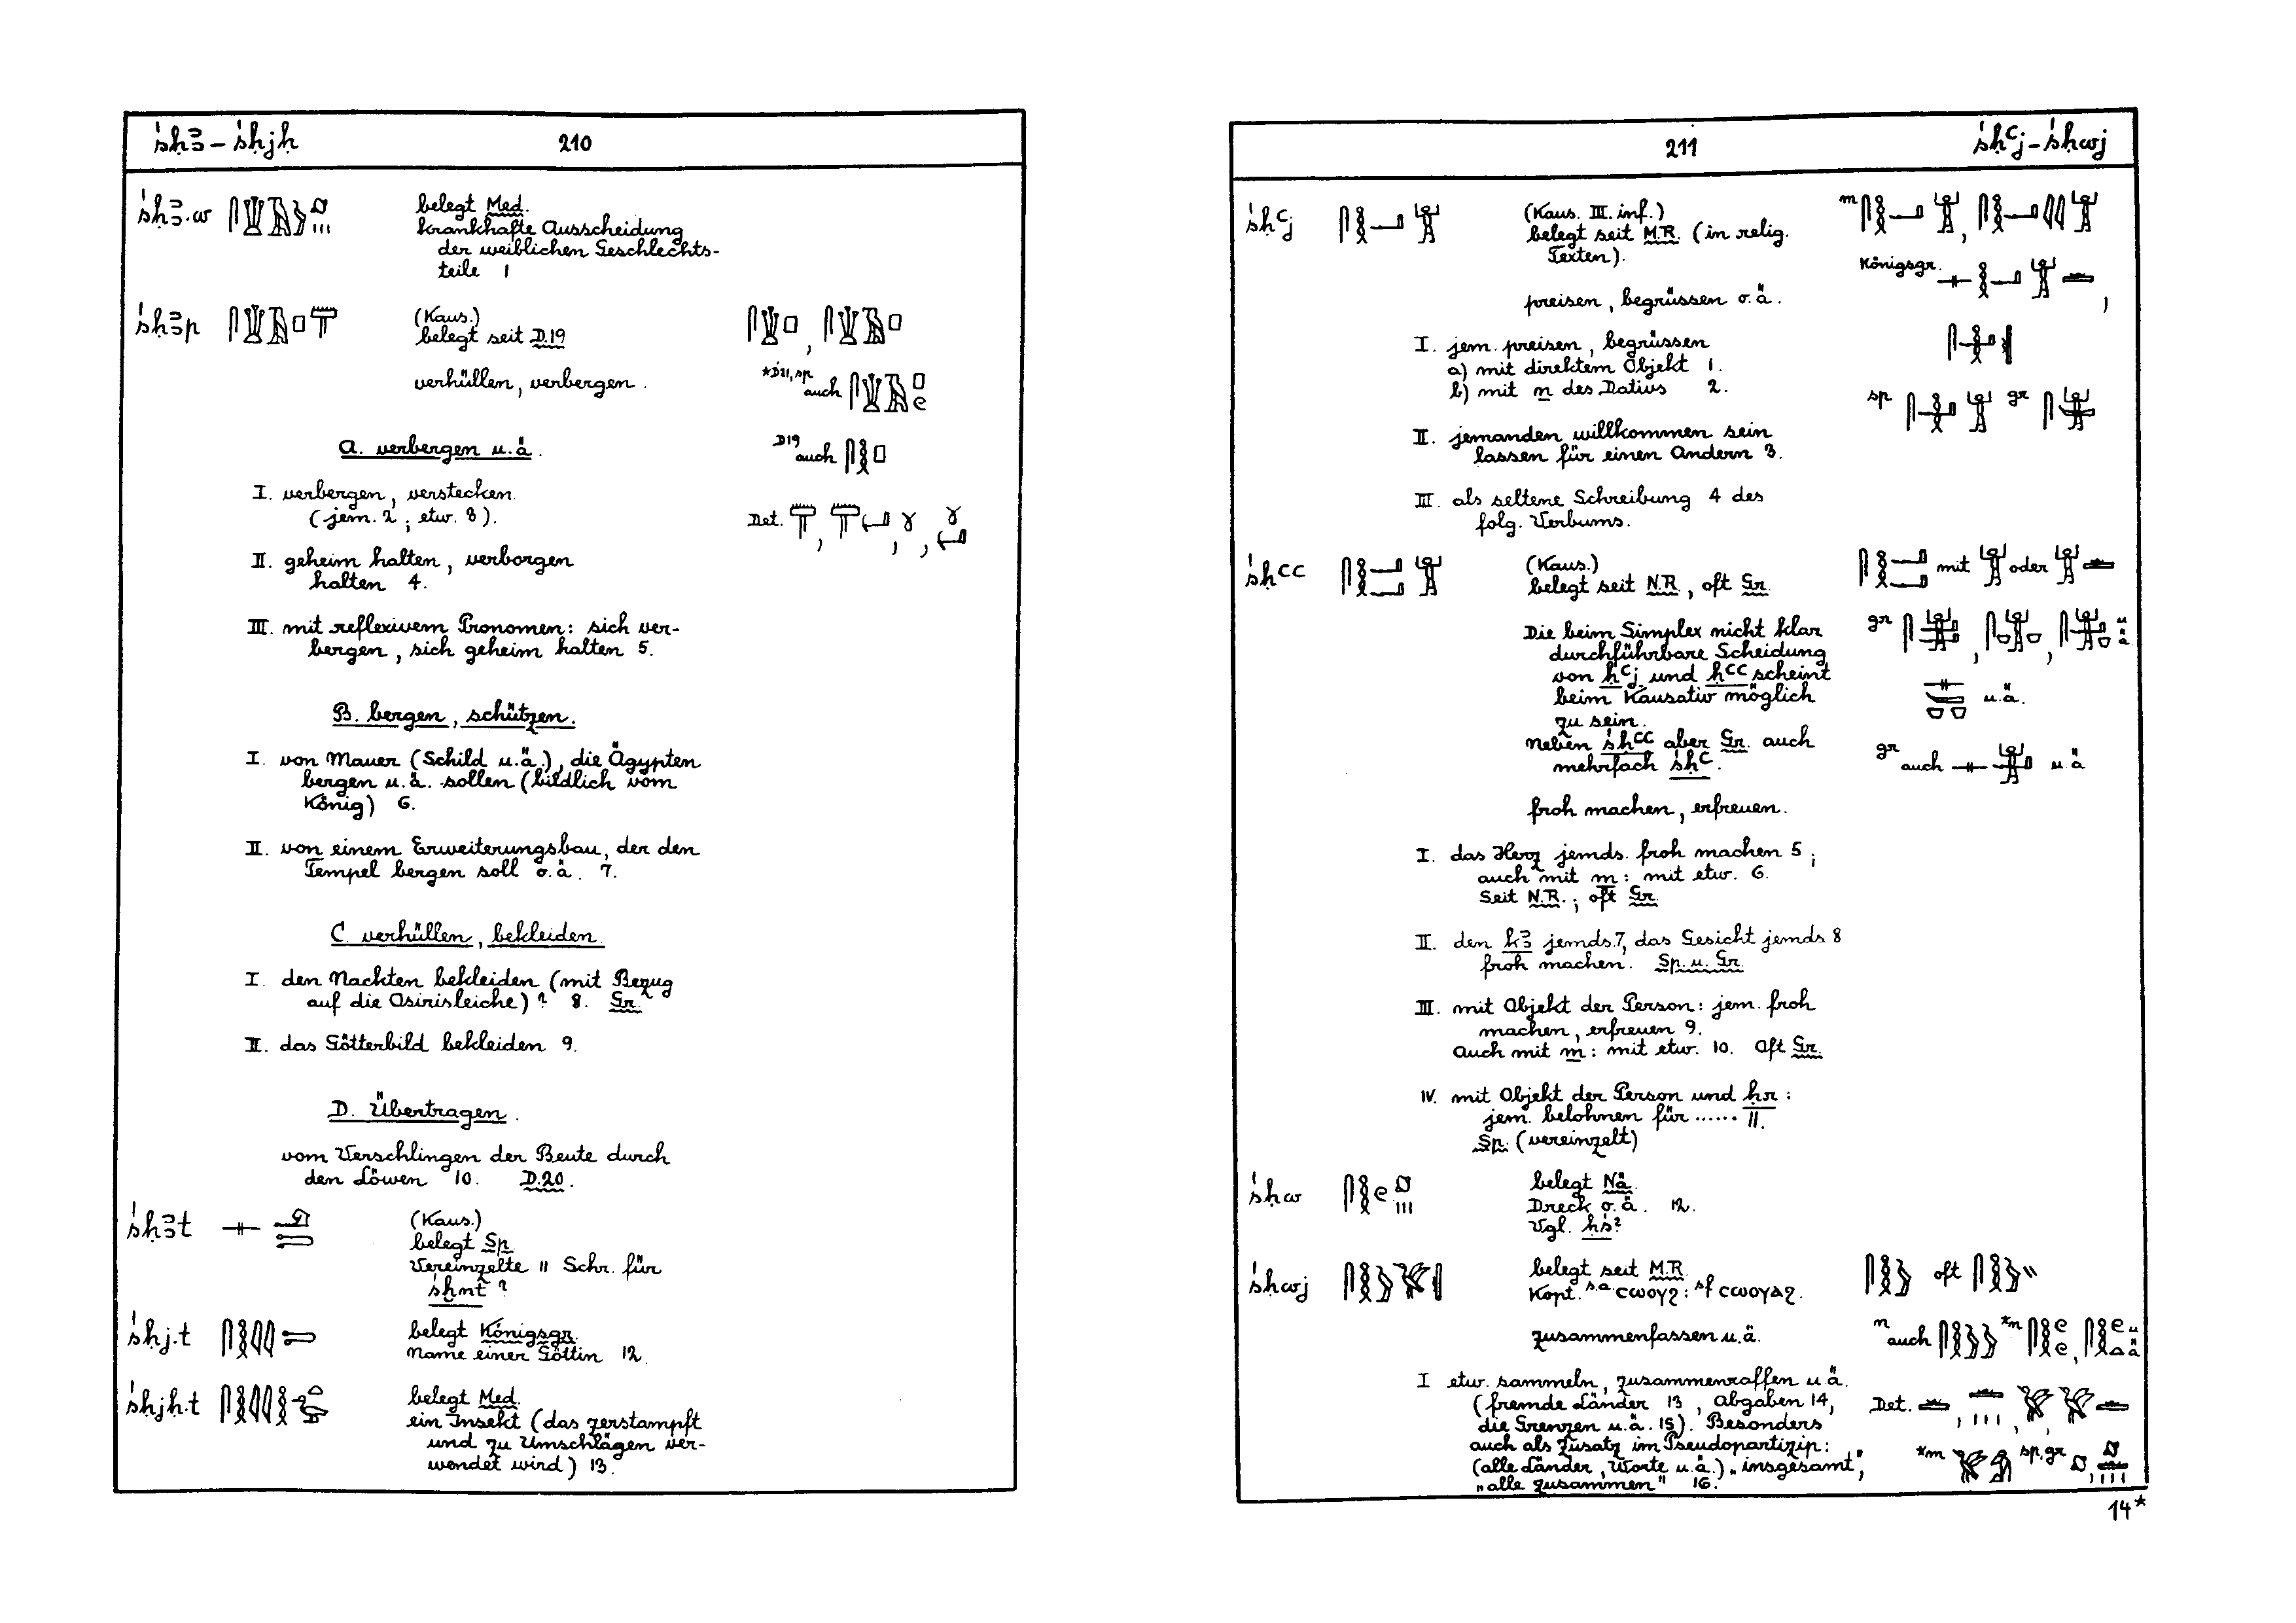 śḥꜣ – śḥjḥ 210
śḥꜣ.w belegt Med.
krankhafte Ausscheidung
der weiblichen Geschlechts-
teile 1
śḥꜣp (Kaus.)
belegt seit D.19
verhüllen, verbergen.
*D21, sp auch
D19 auch
Det.
A. verbergen u.ä.
I. verbergen, verstecken.
(jem. 2; etw. 3).
II. geheim halten, verborgen
halten 4.
III. mit reflexivem Pronomen: sich ver-
bergen, sich geheim halten 5.
B. bergen, schützen.
I. von Mauer (Schild u.ä.), die Ägypten
bergen u.ä. sollen (bildlich vom
König) 6.
II. von einem Erweiterungsbau, der den
Tempel bergen soll o.ä. 7.
C. verhüllen, bekleiden.
I. den Nackten bekleiden (mit Bezug
auf die Osirisleiche)? 8. Gr.
II. das Götterbild bekleiden 9.
D. Übertragen.
vom Verschlingen der Beute durch
den Löwen 10. D.20.
śḥꜣt (Kaus.)
belegt Sp.
Vereinzelte 11 Schr. für
śḫnt?
śḥj.t belegt Königsgr.
Name einer Göttin 12.
śḥjḥ.t belegt Med.
ein Insekt (das zerstampft
und zu Umschlägen ver-
wendet wird) 13.
211 śḥꜥj – śḥwj
śḥꜥj (Kaus. III. inf.)
belegt seit M.R. (in relig.
Texten).
m
Königsgr.
preisen, begrüssen o.ä.
I. jem. preisen, begrüssen
a) mit direktem Objekt 1.
b) mit n des Dativs 2.
sp gr
II. jemanden willkommen sein
lassen für einen Andern 3.
III. als seltene Schreibung 4 des
folg. Verbums.
śḥꜥꜥ (Kaus.)
belegt seit N.R., oft Gr.
mit oder
gr u.ä
u.ä.
gr auch u.ä
Die beim Simplex nicht klar
durchführbare Scheidung
von ḥꜥj und ḥꜥꜥ scheint
beim Kausativ möglich
zu sein.
Neben śḥꜥꜥ aber Gr. auch
mehrfach śḥꜥ.
froh machen, erfreuen.
I. das Herz jemds. froh machen 5;
auch mit m: mit etw. 6.
Seit N.R.; oft Gr.
II. den kꜣ jemds. 7, das Gesicht jemds 8
froh machen. Sp. u. Gr.
III. mit Objekt der Person: jem. froh
machen, erfreuen 9.
Auch mit m: mit etw. 10. Oft Gr.
IV. mit Objekt der Person und ḥr:
jem. belohnen für ...... 11.
Sp. (vereinzelt)
śḥw belegt Nä.
Dreck o.ä. 12.
Vgl. ḥś?
śḥwj belegt seit M.R.
Kopt. s.a. ⲥⲱⲟⲩϩ : sf ⲥⲱⲟⲩⲁϩ.
oft
zusammenfassen u.ä.
n auch *m u.ä
I etw. sammeln, zusammenraffen u.ä.
(fremde Länder 13, Abgaben 14,
die Grenzen u.ä. 15). Besonders
auch als Zusatz im Pseudopartizip:
(alle Länder, Worte u.ä.) „insgesamt“,
„alle zusammen“ 16.
Det.
*m sp. gr
14*